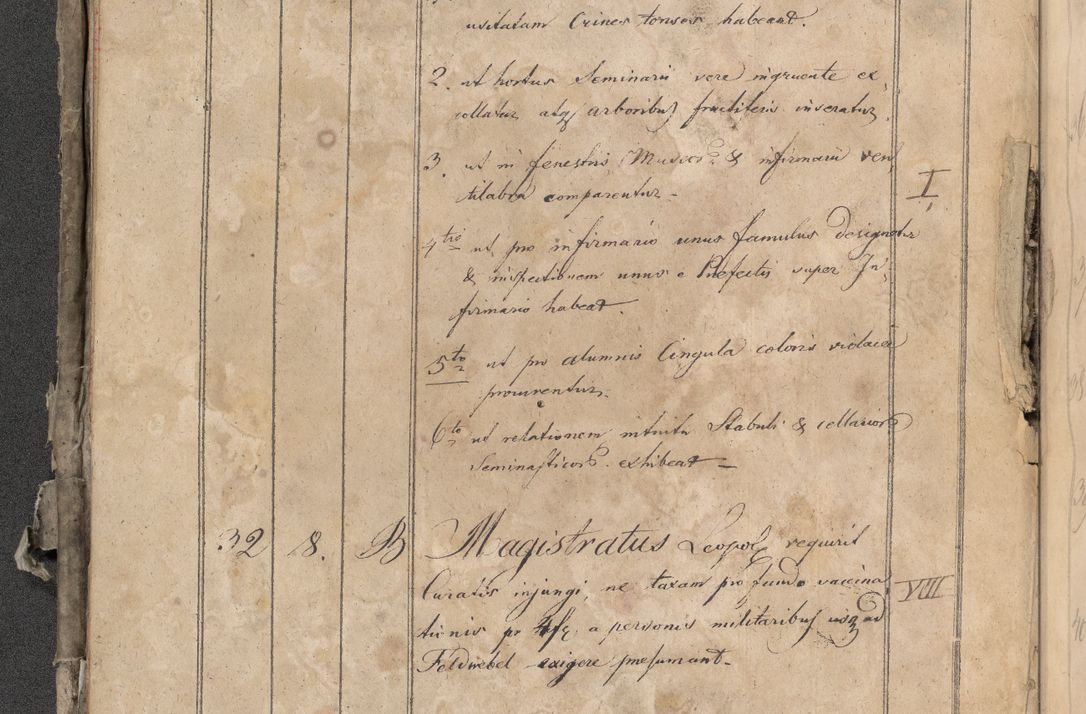 usitatam Crines tonsos habeant.
2. ut hortus Seminarii vere ingruente ex
collatur atq arboribus fructiferis inseratur.
3. ut in fenestris Museor. & infirmarii ven
tilabra comparentur - I,
4tio ut pro infirmario unus famulus designetur
& inspectionem unus e Prefectis super In,
firmario habeat.
5to ut pro alumnis Cingula coloris violacei
procurentur.
6to ut relationem intuitu Stabuli & cellarior
Seminasticor. exhibeat -
32 8. B Magistratus Leopol requirit
Curatis injungi, ne taxam pro fundo vaccina VIII
tionis pr a personis militaribus usq ad
Feldwebel exigere presumant.